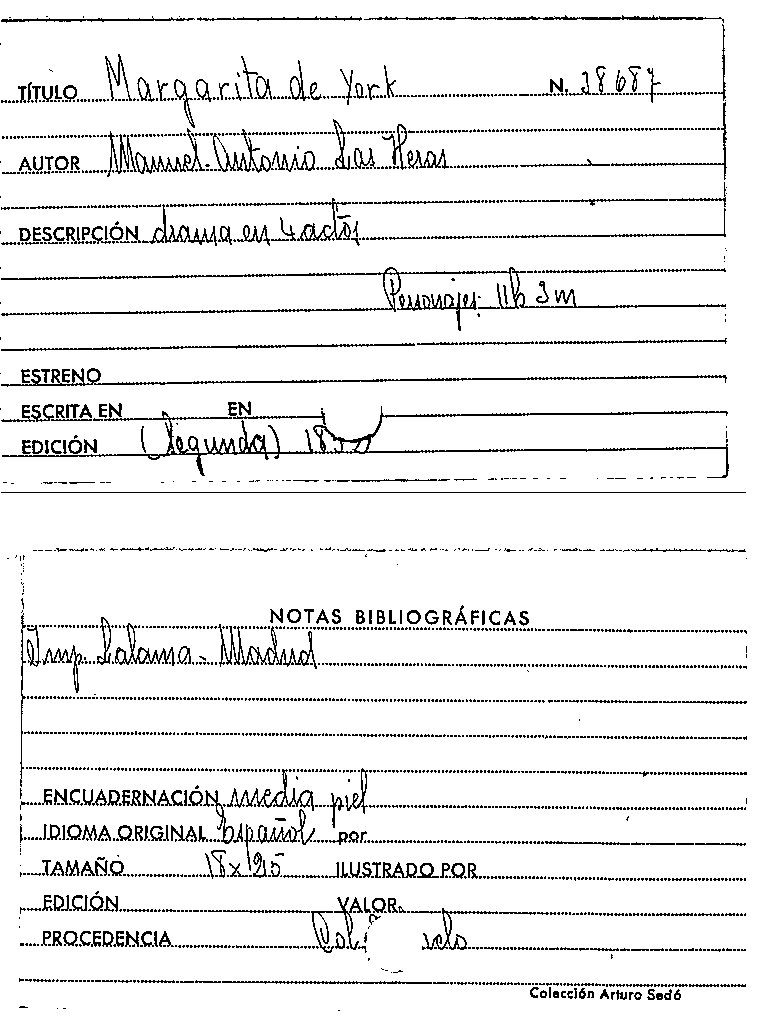 TÍTULO Margarita de York N. 38687
AUTOR Manuel-Antonio Las Heras
DESCRIPCIÓN drama en 4 actos
Personajes: 11h 3m
ESTRENO
ESCRITA EN EN
EDICIÓN (Segunda)
NOTAS BIBLIOGRÁFICAS
Imp. Lalama - Madrid
ENCUADERNACIÓN media piel
IDIOMA ORIGINAL Español por
TAMAÑO ILUSTRADO POR
EDICIÓN VALOR.
PROCEDENCIA
Colección Arturo Sedó